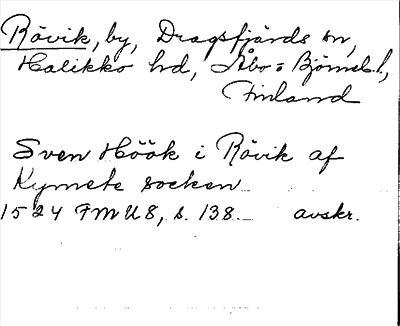 Rövik, by, Dragsfjärds sn,
Halikko hd, Åbo = Björneb. l.,
Finland
Sven Höök i Rövik af
Kymete socken
1524 FMU 8, s. 138. avskr.